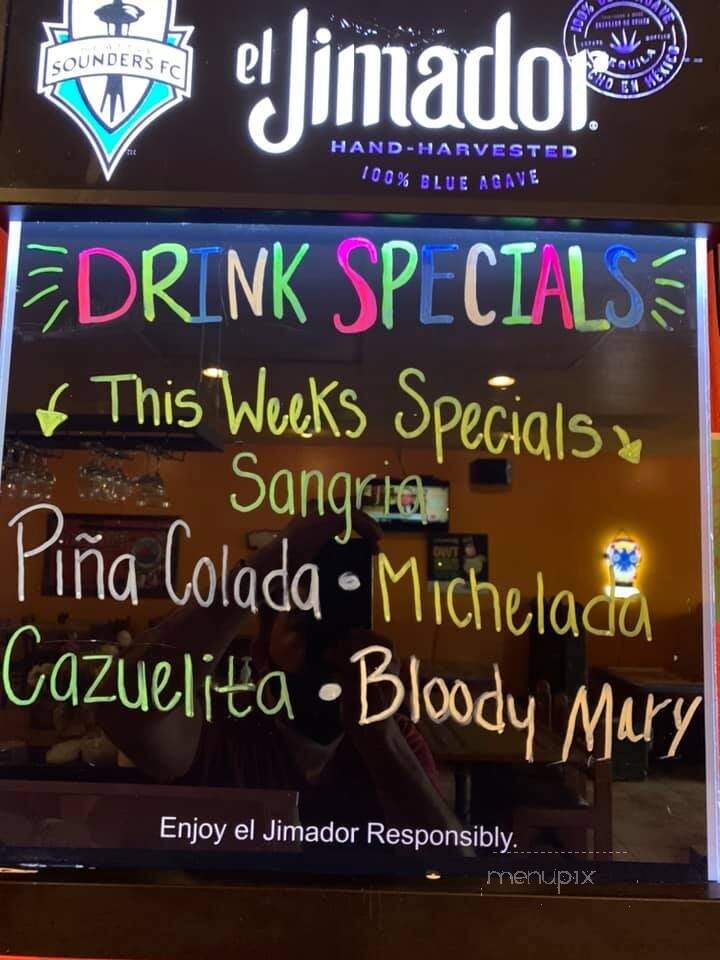 SEATTLE
SOUNDERS FC
el Jimador
HAND-HARVESTED
100% BLUE AGAVE
100%
AGAVE
TEQUILA
HECHO EN MEXICO
DRINK SPECIALS
This Weeks Specials
Sangria
Piña Colada • Michelada
Cazuelita • Bloody Mary
Enjoy el Jimador Responsibly.
menupix